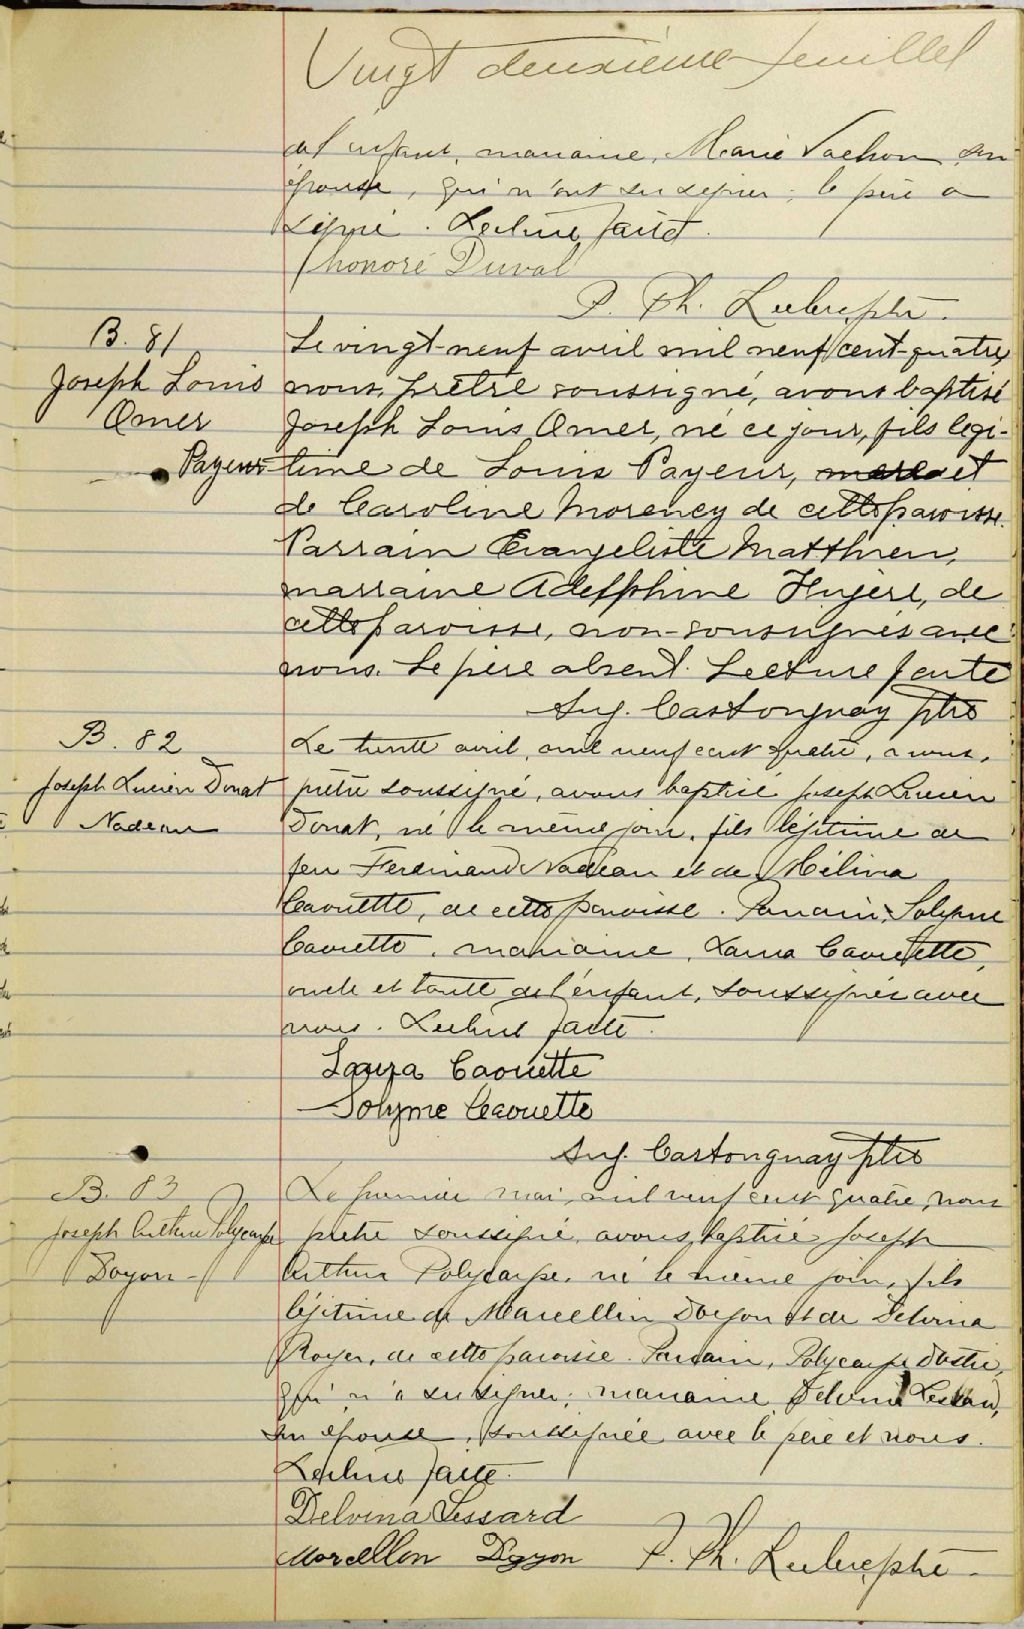 Vingt deuxième feuillet
de l'enfant, marraine, Marie Vachon son
épouse, qui n'ont su signer; le père a
signé. Lecture faite.
Honoré Duval
P. Ph.
B. 81
Joseph Louis
Omer
Payeur
Le vingt-neuf avril mil neuf cent-quatre,
nous, prêtre soussigné, avons baptisé
Joseph Louis Omer, né ce jour, fils légi-
time de Louis Payeur, et
de Caroline Morency de cette paroisse.
Parrain Evangeliste Matthieu,
marraine Adelphine de
cette paroisse, non-soussignés avec
nous. Le père absent. Lecture faite
Aug. Castonguay ptre
B. 82
Joseph Lucien Donat
Nadeau
Le trente avril, mil neuf cent quatre, nous,
prêtre soussigné, avons baptisé Joseph Lucien
Donat, né le même jour, fils légitime de
feu Ferdinand Nadeau et de Mélina
Caouette, de cette paroisse. Parrain, Solyme
Caouette, marraine, Laura Caouette,
oncle et tante de l'enfant, soussignés avec
nous. Lecture faite.
Laura Caouette
Solyme Caouette
Aug. Castonguay ptre
B. 83
Joseph Arthur Polycarpe
Doyon
Le premier mai, mil neuf cent quatre, nous
prêtre soussigné, avons baptisé Joseph
Arthur Polycarpe, né le même jour, fils
légitime de Marcellin Doyon et de Delvina
Royer, de cette paroisse. Parrain, Polycarpe
qui n'a su signer; marraine Delvina Lessard,
son épouse, soussignée avec le père et nous.
Lecture faite.
Delvina Lessard
Marcellin Doyon P. Ph.